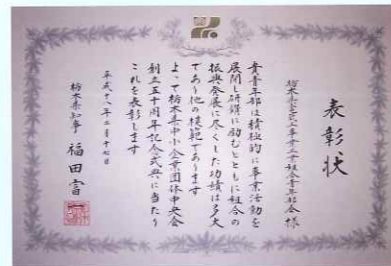 表彰状
栃木県電気工事業工業組合青年部会 様
貴青年部は積極的に事業活動を
展開し研鑽に励むとともに組合の
振興発展に尽くした功績は多大
であり他の模範であります
よって栃木県中小企業団体中央会
創立五十周年記念式典に当たり
これを表彰します
平成十八年二月十七日
栃木県知事 福田富一